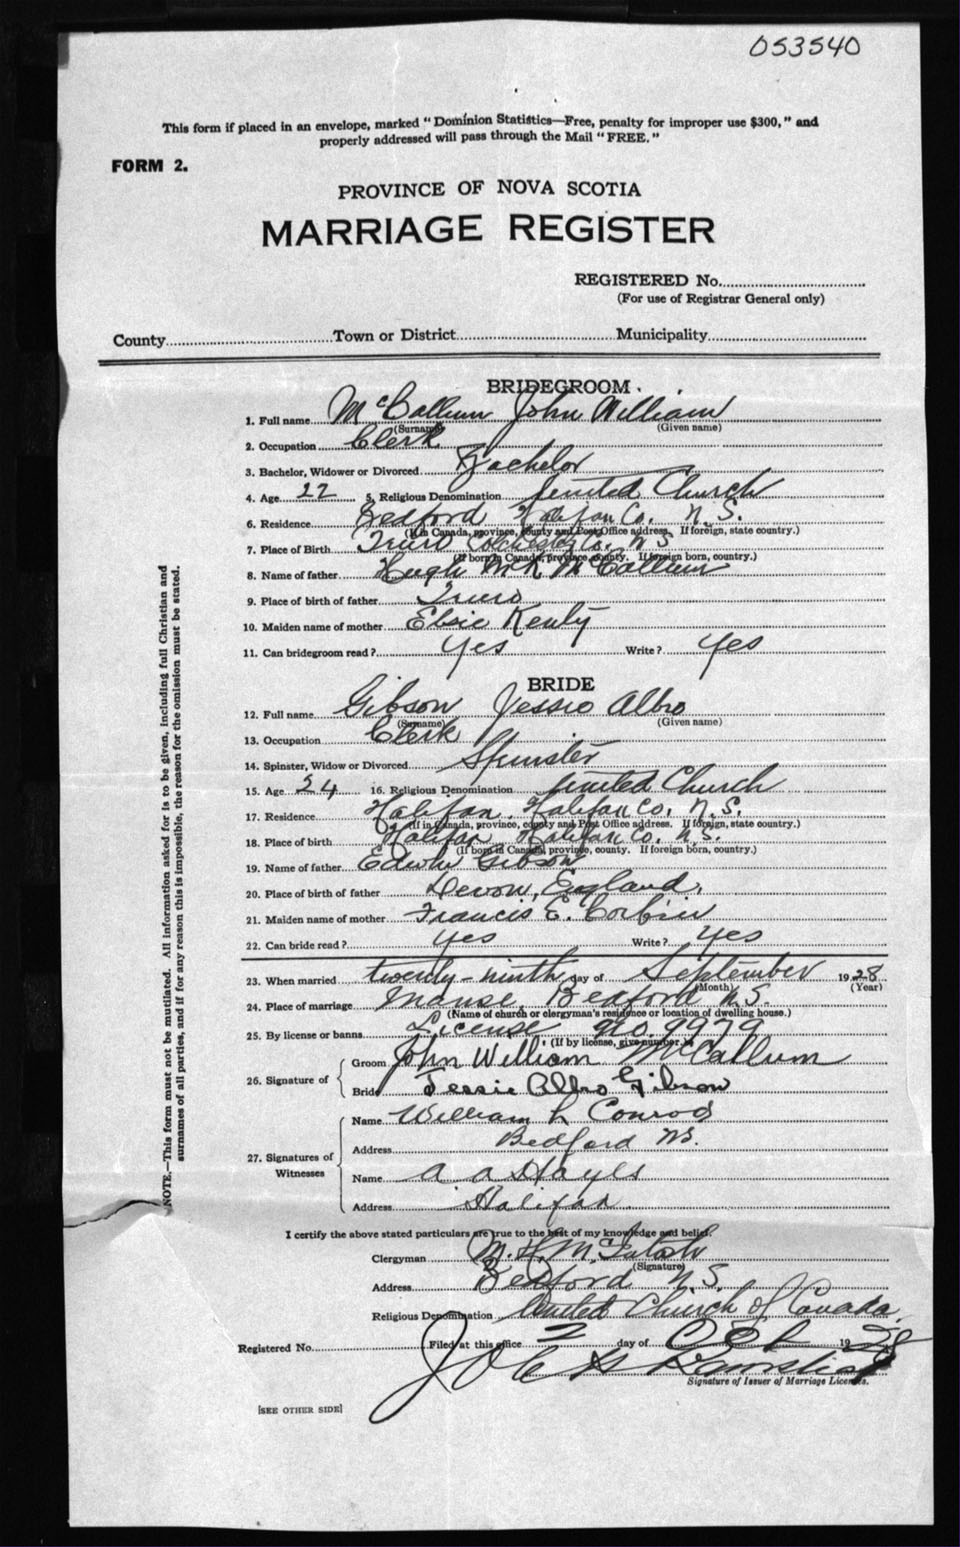 053540
This form if placed in an envelope, marked "Dominion Statistics—Free, penalty for improper use $300," and
properly addressed will pass through the Mail "FREE."
FORM 2.
PROVINCE OF NOVA SCOTIA
MARRIAGE REGISTER
REGISTERED No.
(For use of Registrar General only)
County Town or District Municipality
BRIDEGROOM.
1. Full name McCallum John William
(Surname) (Given name)
2. Occupation Clerk
3. Bachelor, Widower or Divorced Bachelor
4. Age 22 5. Religious Denomination United Church
6. Residence Bedford Halifax Co. N.S.
(If in Canada, province, county and Post Office address. If foreign, state country.)
7. Place of Birth Truro Colchester Co. N.S
(If born in Canada, province, county. If foreign born, country.)
8. Name of father Hugh McK McCallum
9. Place of birth of father Truro
10. Maiden name of mother Elsie Kently
11. Can bridegroom read? Yes Write? Yes
BRIDE
12. Full name Gibson Jessie Albro
(Surname) (Given name)
13. Occupation Clerk
14. Spinster, Widow or Divorced Spinster
15. Age 24 16. Religious Denomination United Church
17. Residence Halifax. Halifax Co, N.S.
(If in Canada, province, county and Post Office address. If foreign, state country.)
18. Place of birth Halifax Halifax Co. N.S.
(If born in Canada, province, county. If foreign born, country.)
19. Name of father Edwin Gibson
20. Place of birth of father Devon, England,
21. Maiden name of mother Francis E. Corbin
22. Can bride read? yes Write? Yes
23. When married twenty-ninth day of September 1928
(Month) (Year)
24. Place of marriage Manse, Bedford N.S.
(Name of church or clergyman's residence or location of dwelling house.)
25. By license or banns License No. 9979
(If by license, give number.)
26. Signature of
Groom John William McCallum
Bride Jessie Albro Gibson
27. Signatures of Witnesses
Name William L Conrod
Address Bedford NS.
Name A A Hayes
Address Halifax
I certify the above stated particulars are true to the best of my knowledge and belief.
Clergyman M. H. McIntosh
(Signature)
Address Bedford N.S.
Religious Denomination United Church of Canada,
Registered No. Filed at this office 2 day of Oct 1928
Signature of Issuer of Marriage Licenses.
[SEE OTHER SIDE]
NOTE.—This form must not be mutilated. All information asked for is to be given, including full Christian and
surnames of all parties, and if for any reason this is impossible, the reason for the omission must be stated.